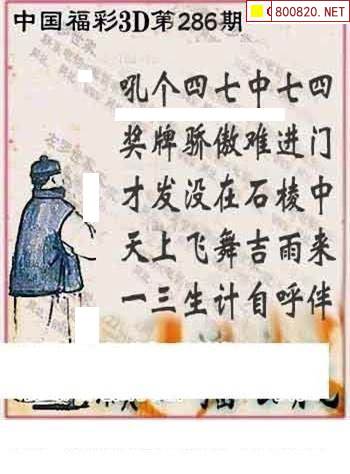 800820.NET
中国福彩3D第286期
吼个四七中七四
奖牌骄傲难进门
才发没在石棱中
天上飞舞吉雨来
一三生计自呼伴